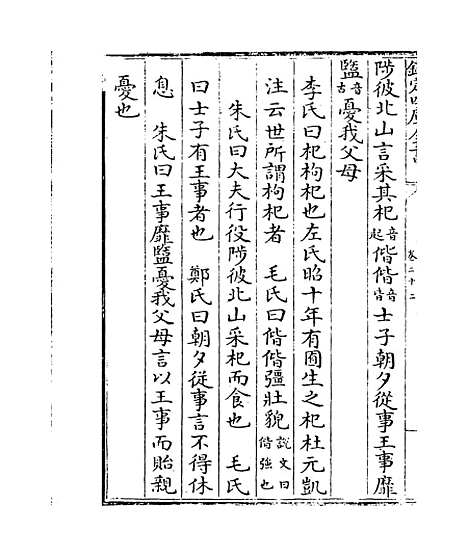 欽定四庫全書
卷二十二
陟彼北山言采其杞音起偕偕音皆士子朝夕從事王事靡
盬音古憂我父母
李氏曰杞枸杞也左氏昭十年有圃生之杞杜元凱
注云世所謂枸杞者 毛氏曰偕偕彊壯貌說文曰偕強也
朱氏曰大夫行役陟彼北山采杞而食也 毛氏
曰士子有王事者也 鄭氏曰朝夕從事言不得休
息 朱氏曰王事靡盬憂我父母言以王事而貽親
憂也